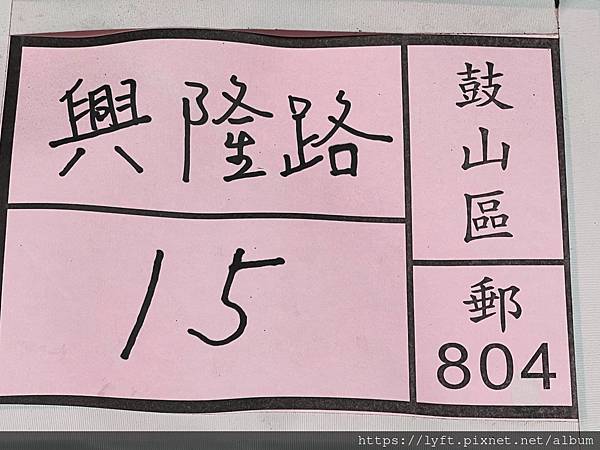 興隆路
15
鼓山區
郵
804
https://lyft.pixnet.net/album